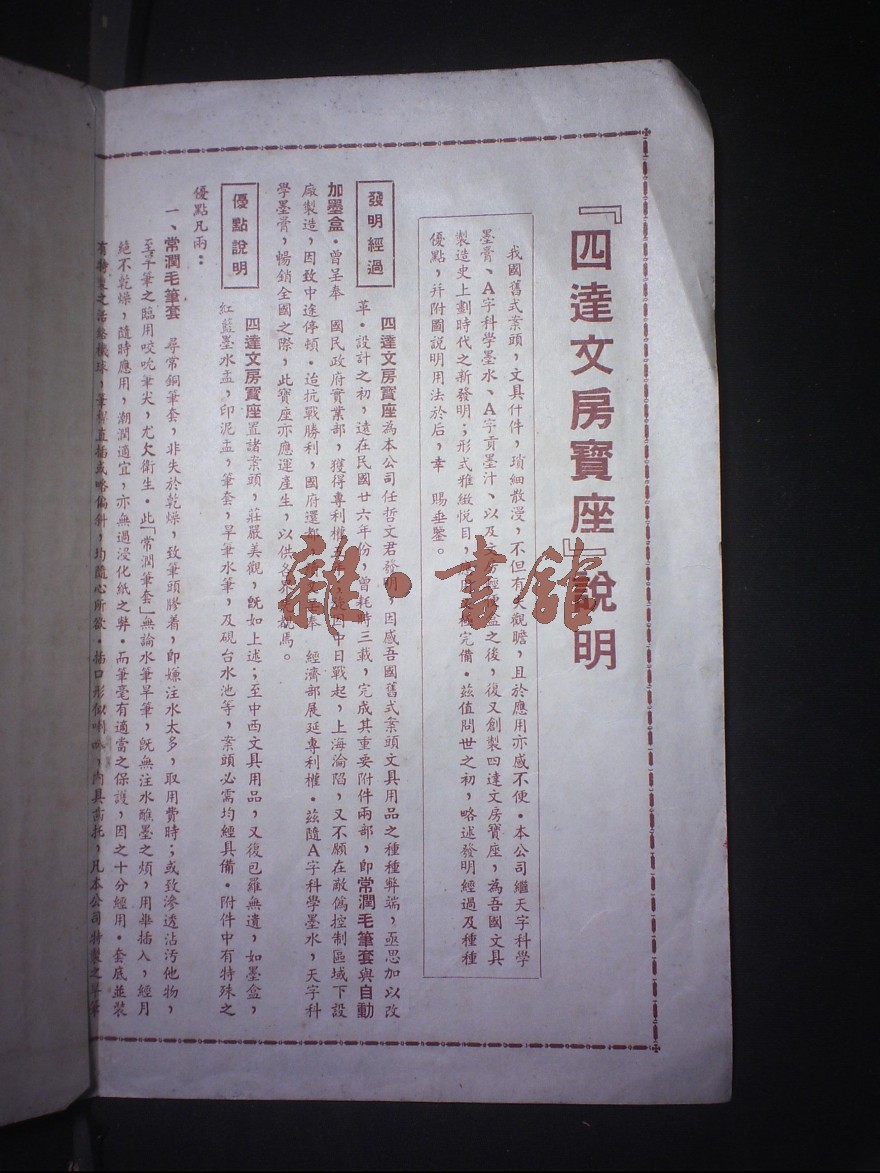 『四達文房寶座』說明
我國舊式案頭，文具什件，瑣細散漫，不但有失觀瞻，且於應用亦感不便．本公司繼天字科學
墨膏、A字科學墨水、A字貢墨汁、以及文房經濟盒之後，後又創製四達文房寶座，為吾國文具
製造史上劃時代之新發明；形式雅緻悦目，極完備．茲值問世之初，略述發明經過及種種
優點，幷附圖說明用法於后，幸　賜垂鑒。
發明經過
四達文房寶座為本公司任哲文君發明，因感吾國舊式案頭文具用品之種種弊端，亟思加以改
革．設計之初，遠在民國廿六年份，曾耗時三載，完成其重要附件兩部，卽常潤毛筆套與自動
加墨盒．曾呈奉　國民政府實業部，獲得專利權，因中日戰起，上海淪陷，又不願在敵偽控制區域下設
廠製造，因致中途停頓．迨抗戰勝利，國府還都，奉　經濟部展延專利權．茲隨A字科學墨水，天字科
學墨膏，暢銷全國之際，此寶座亦應運產生，以供各界焉。
優點說明
四達文房寶座置諸案頭，莊嚴美觀，旣如上述；至中西文具用品，又復包羅無遺，如墨盒，
紅藍墨水盂，印泥盂，筆套，旱筆水筆，及硯台水池等，案頭必需均經具備．附件中有特殊之
優點凡兩：
一、常潤毛筆套　尋常銅筆套，非失於乾燥，致筆頭膠着，卽嫌注水太多，取用費時；或致滲透沾汚他物，
至旱筆之臨用咬吮筆尖，尤欠衞生．此「常潤筆套」無論水筆旱筆，旣無注水醮墨之煩，用畢插入，經月
絶不乾燥，隨時應用，潮潤適宜，亦無過浸化紙之弊．而筆毫有適當之保護，因之十分經用．套底並裝
有特製之活絡機球，筆桿直插或略偏斜，均隨心所欲．插口形似喇叭，內具齒托，凡本公司特製之旱筆
雜·書館